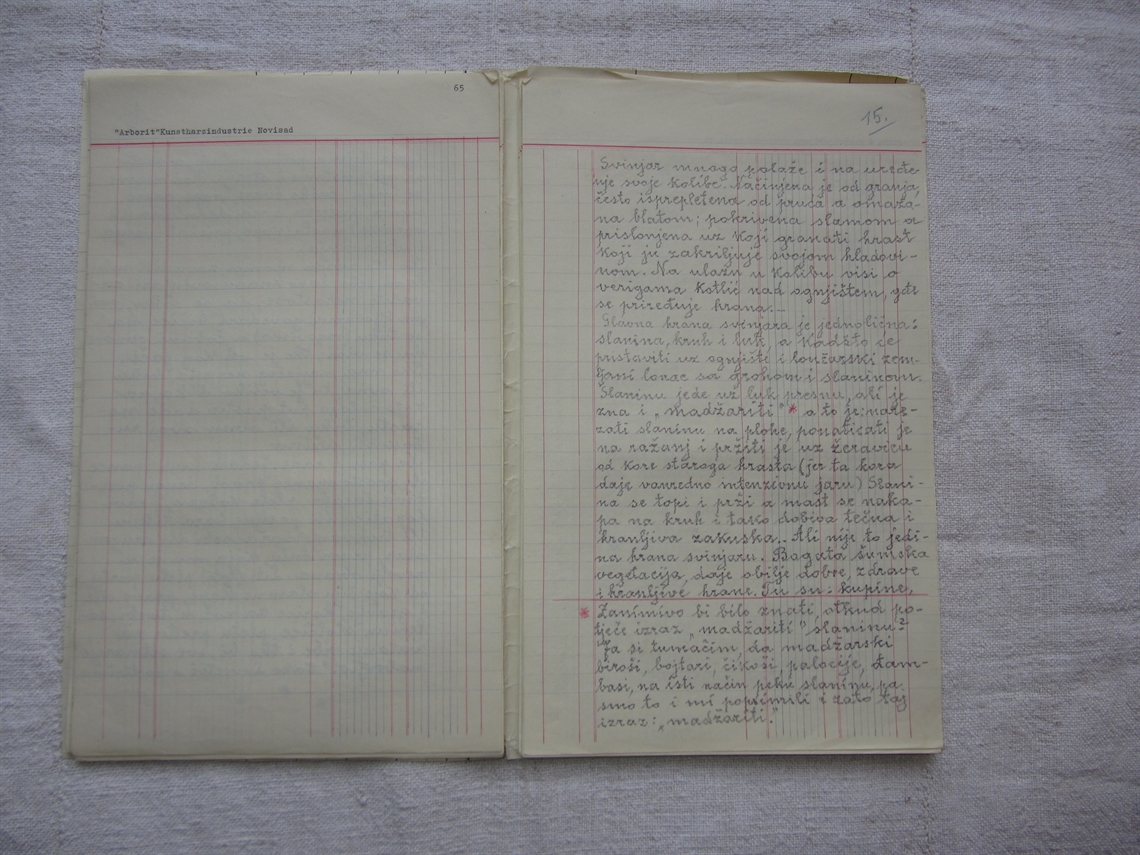 65
"Arborit"Kunstharzindustrie Novisad
15.
Svinjar mnogo polaže i na uređe-
nje svoje kolibe. Načinjena je od granja,
često isprepletena od pruća a omaza-
na blatom; pokrivena slamom a
prislonjena uz koji granati hrast
koji ju zakriljuje svojom hladovi-
nom. Na ulazu u kolibu visi o
verigama kotlić nad ognjištem, gdi
se priređuje hrana.-
Glavna hrana svinjara je jednolična:
slanina, kruh i luk, a kadšto će
pristaviti uz ognjište i lončarski zem-
ljani lonac sa grahom i slaninom.
Slaninu jede uz luk presnu, ali je
zna i „madžariti" * a to je: nare-
zati slaninu na plohe, ponaticati je
na ražanj i pržiti je uz žeravicu
od kore staroga hrasta (jer ta kora
daje vanredno intenzivnu jaru) Slani-
na se topi i prži a mast se naka-
pa na kruh i tako dobiva tečna i
hranljiva zakuska. Ali nije to jedi-
na hrana svinjaru. Bogata šumska
vegetacija, daje obilje dobre, zdrave
i hranljive hrane. Tu su: kupine,
* Zanimivo bi bilo znati, otkud po-
tječe izraz „madžariti" slaninu?
Ja si tumačim, da madžarski
biroši, bojtari, čikoši, palocije, đam-
baši, na isti način peku slaninu, pa
smo to i mi poprimili i zato taj
izraz: „madžariti".